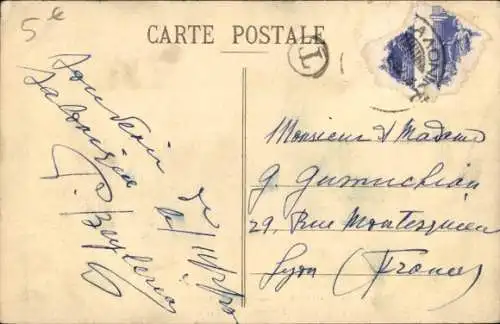 5€
CARTE POSTALE
T
Souvenir de
Salonique le
Monsieur & Madame
G. Gumuchian
29, Rue Montesquieu
Lyon (France)